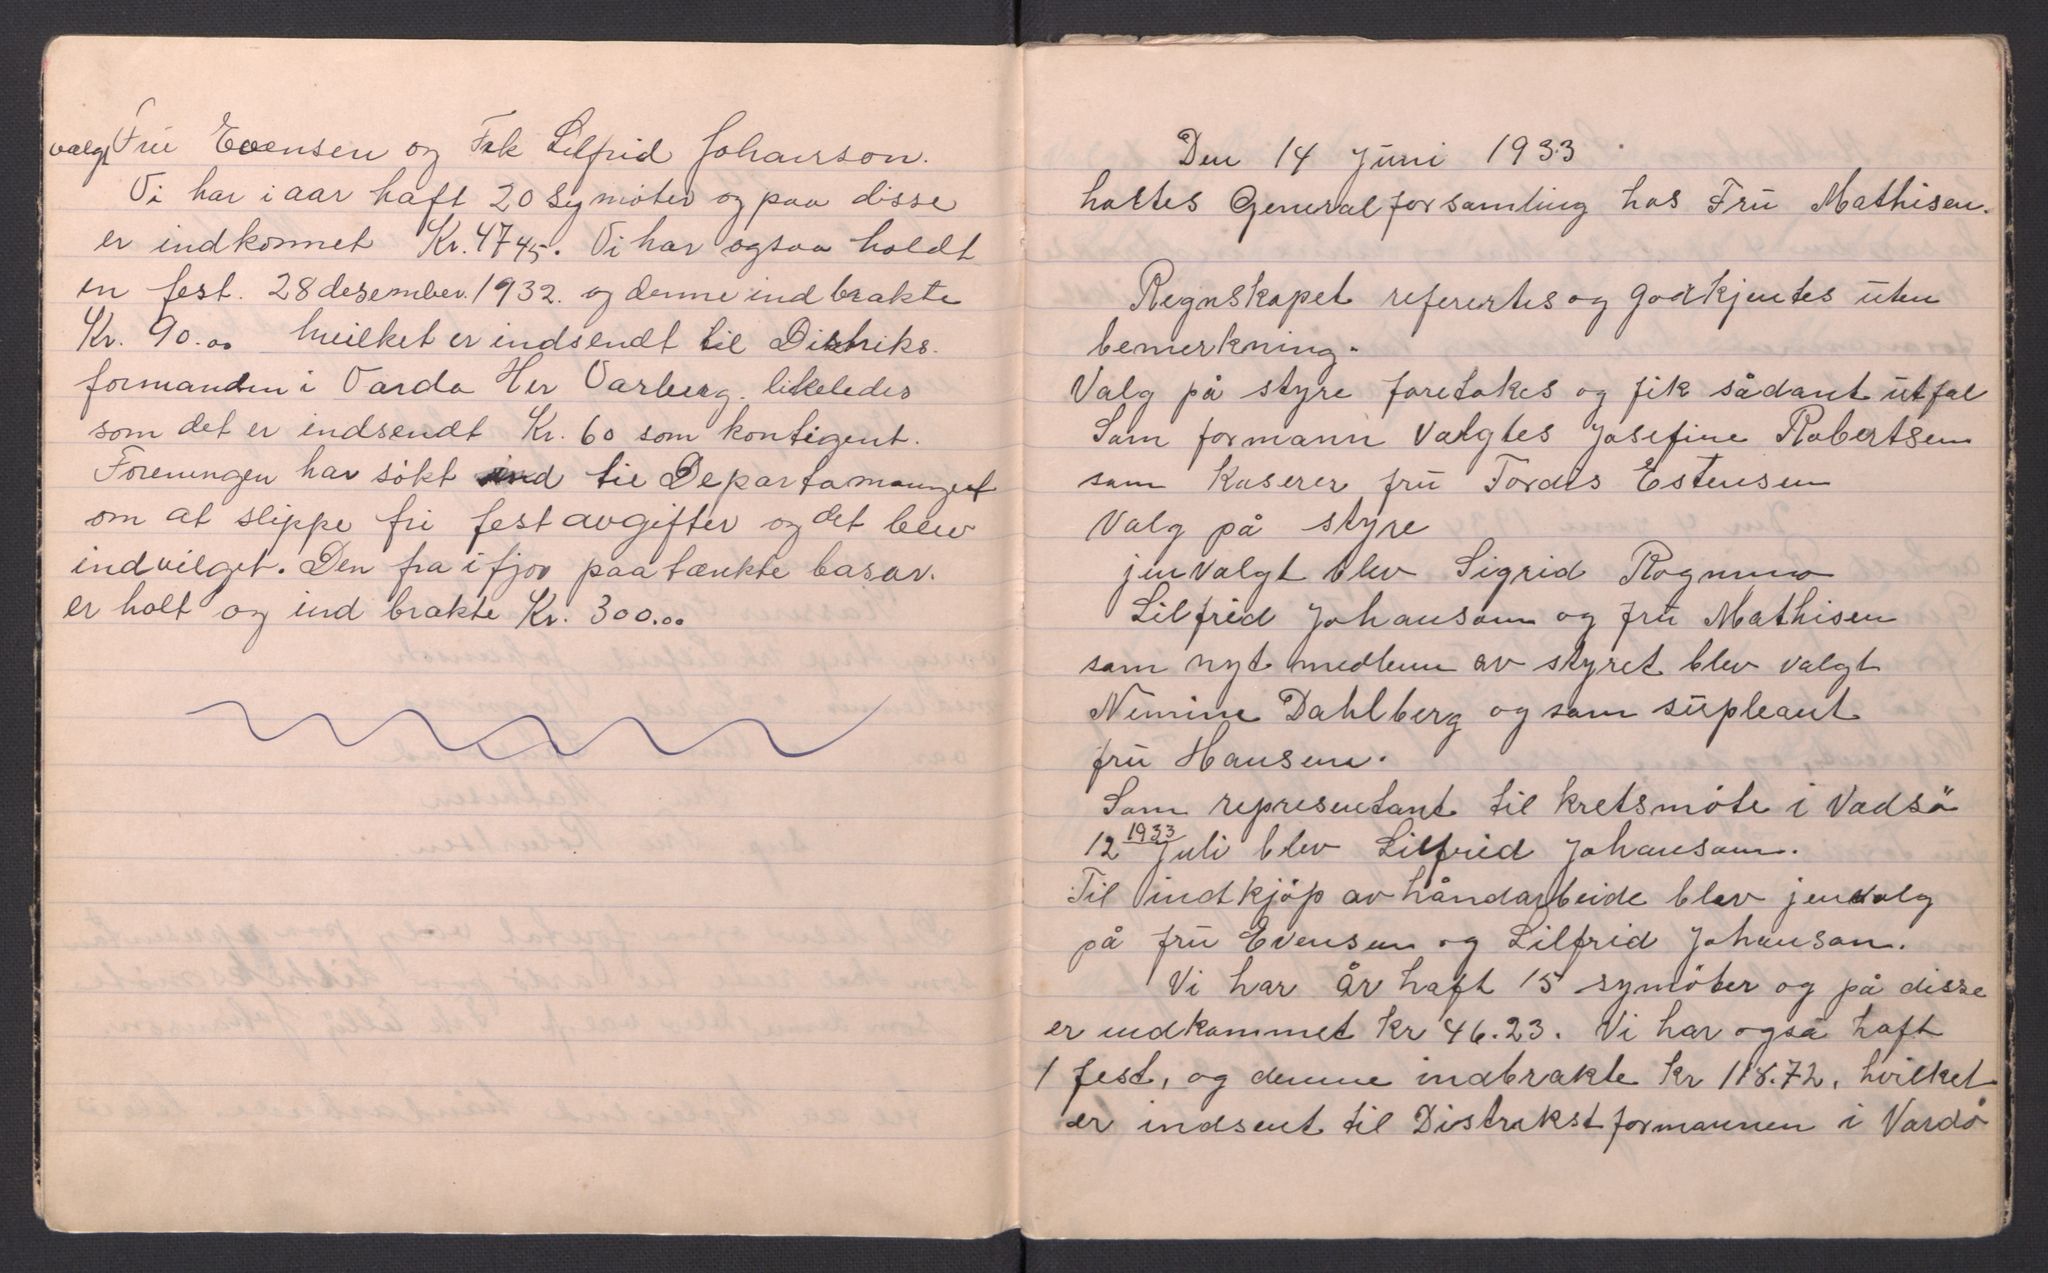 valgt Fru Evensen og Frk Lilfrid Johanson.
Vi har i aar haft 20 symøter og paa disse
er indkommet Kr. 47 45. Vi har ogsaa holdt
en fest. 28 desember. 1932. og denne ind brakte
Kr. 90.00 hvilket er indsendt til Distriks.
formanden i Vardø Her Varberg. likeledes
som det er indsendt Kr. 60 som kontigent.
Foreningen har søkt ind til Departamanget
om at slippe fri festavgifter og det blev
indvilget. Den fra ifjor paatænkte basar.
er holt og ind brakte Kr. 300.00
Den 14 Juni 1933
holtes Generalforsamling hos Fru Mathisen.
Regnskapet refertes og godkjentes uten
bemerkning.
Valg på styre foretokes og fik sådant utfal
Som formann Valgtes Josefine Robertsen
som Kaserer fru Tordis Estensen
Valg på styre
jenvalgt blev Sigrid Rogmmo
Lilfrid Johansom og fru Mathisen
som nyt medlem av styret blev valgt
Nimine Dahlberg og som supleant
fru Hansen.
Som representant til kretsmöte i Vadsö
12 1933 Juli blev Lilfrid Johansom.
Til indkjöp av håndarbeide blev jenvalg
på fru Evensen og Lilfrid Johanson.
Vi har År haft 15 symöter og på disse
er indkommet kr 46.23. Vi har også haft
1 fest, og denne indbrakte kr 118.72, hvilket
er indsent til Distrikstformannen i Vardö